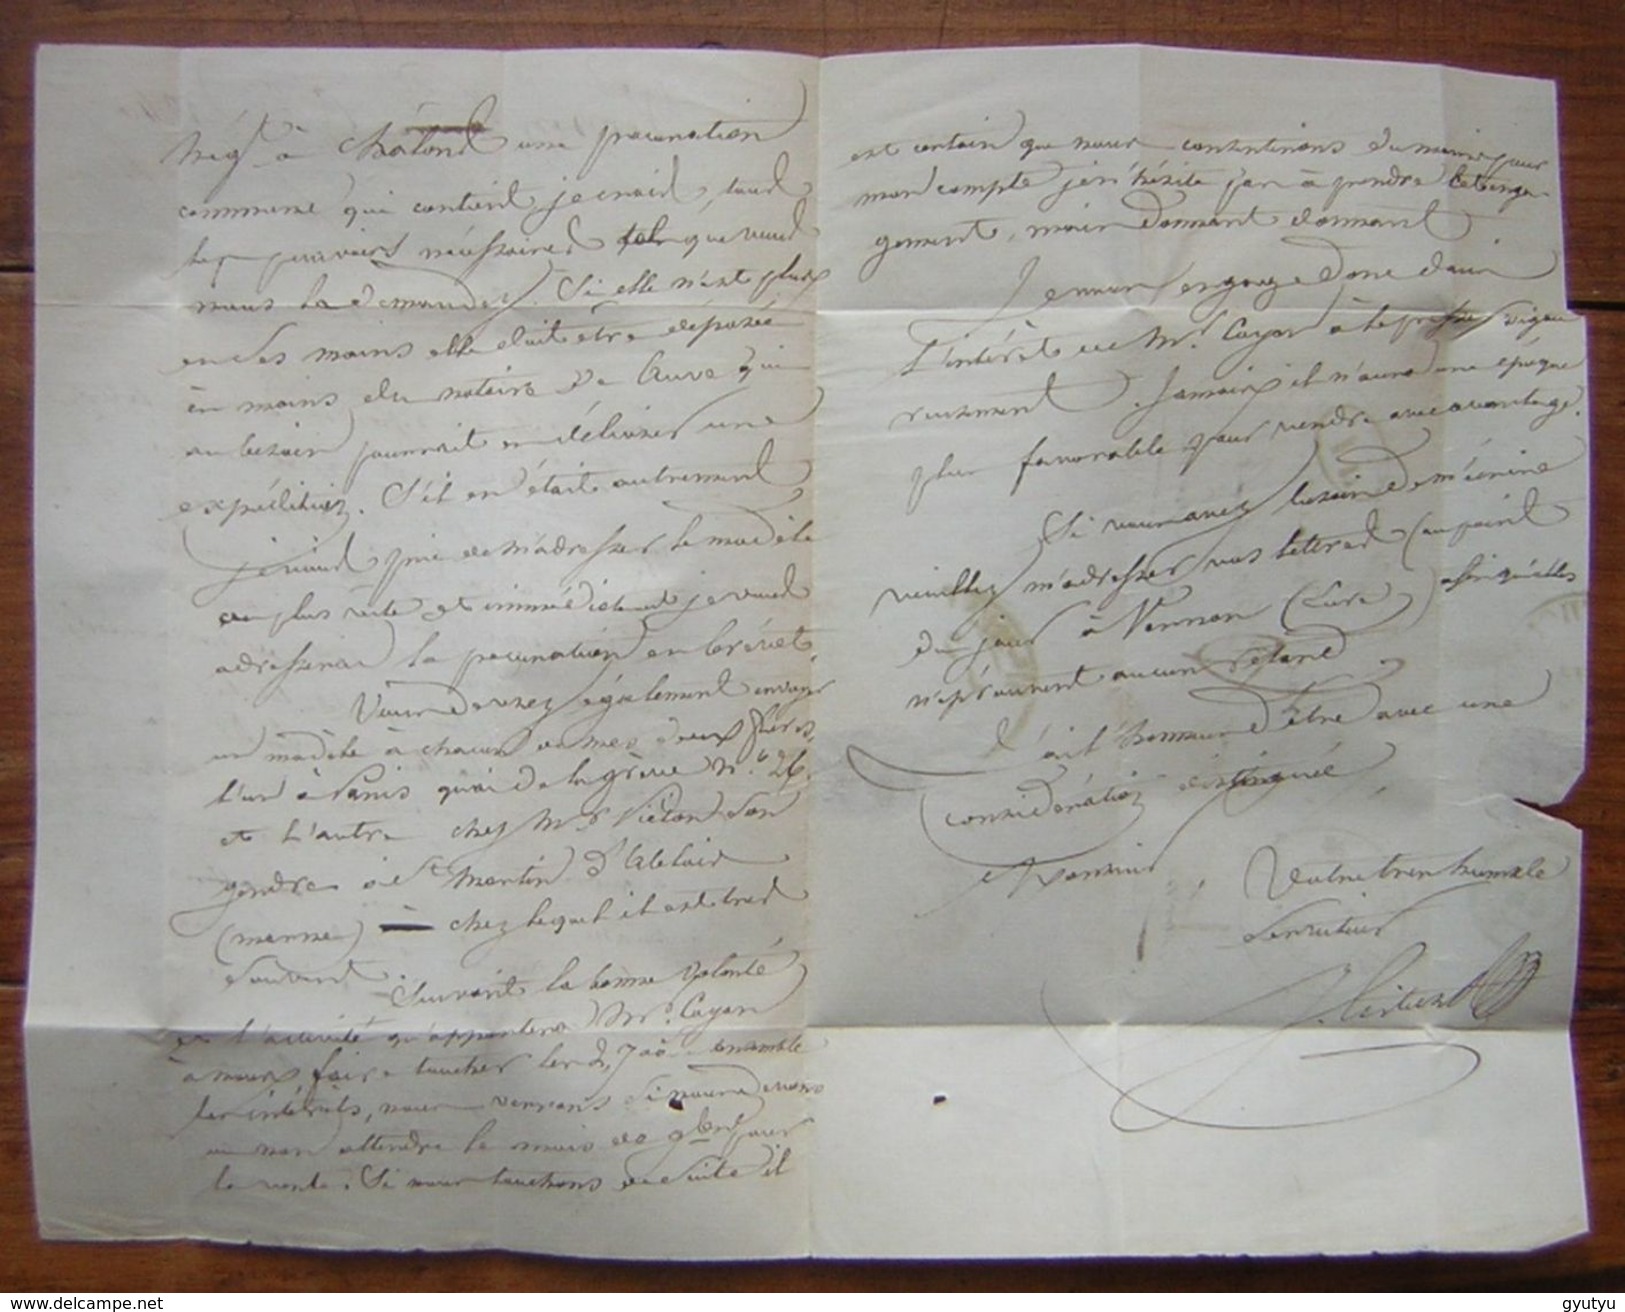 Nég.t à Châlons une procuration
commune qui contient, je crois, tous
les pouvoirs nécessaires tels que vous
nous la demandez. Si elle n'est plus
en ses mains elle doit être déposée
ès mains du notaire de Auve qui
au besoin pourrait en délivrer une
expédition. S'il en était autrement
je vous prie de m'adresser le modèle
au plus vite et immédiatement je vous
adresserai la procuration en brévet.
Vous devrez également envoyer
un modèle à chacun de mes deux frères,
l'un à Paris quai de la grève N.o 26.
et l'autre chez M.r Victor son
gendre à St Martin d'Ablois
(marne) — chez lequel il est très
souvent
Suivant la bonne volonté
et l'activité qu'apportera M.r Cayer
à nous faire toucher les 2,700 ensemble
les intérêts, nous verrons si nous devons
ou non attendre le mois de 9bre pour
la vente. Si nous touchons de suite il
est certain que nous consentirons du moins pour
mon compte je n'hésite pas à prendre cet enga-
gement, mais donnant donnant
Je vous engage donc dans
l'intérêt de M.r Cayer à le presser vigou
reusement. Jamais il n'aura une époque
plus favorable pour vendre avec avantage.
Si vous avez besoin de m'écrire
veuillez m'adresser vos lettres (au point
du jour à Vernon (Eure) afin qu'elles
n'éprouvent aucun retard.
J'ai l'honneur d'être avec une
considération distinguée,
Monsieur,
Votre très humble
Serviteur
gyutyu